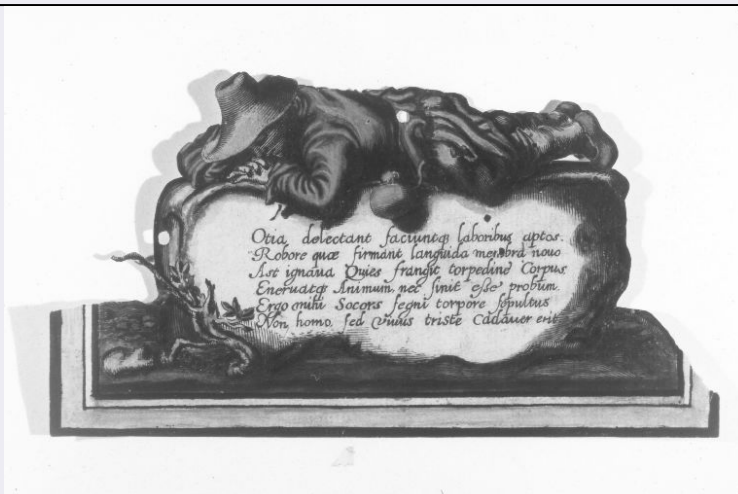 Otia delectant faciuntq; laboribus aptos.
Robore quæ firmant languida membra nouo
Ast ignaua Quies frangit torpedine Corpus
Eneruatq; Animum, nec sinit eße probum.
Ergo mihi Socors segni torpore sepultus
Non homo, sed viuus triste Cadauer erit